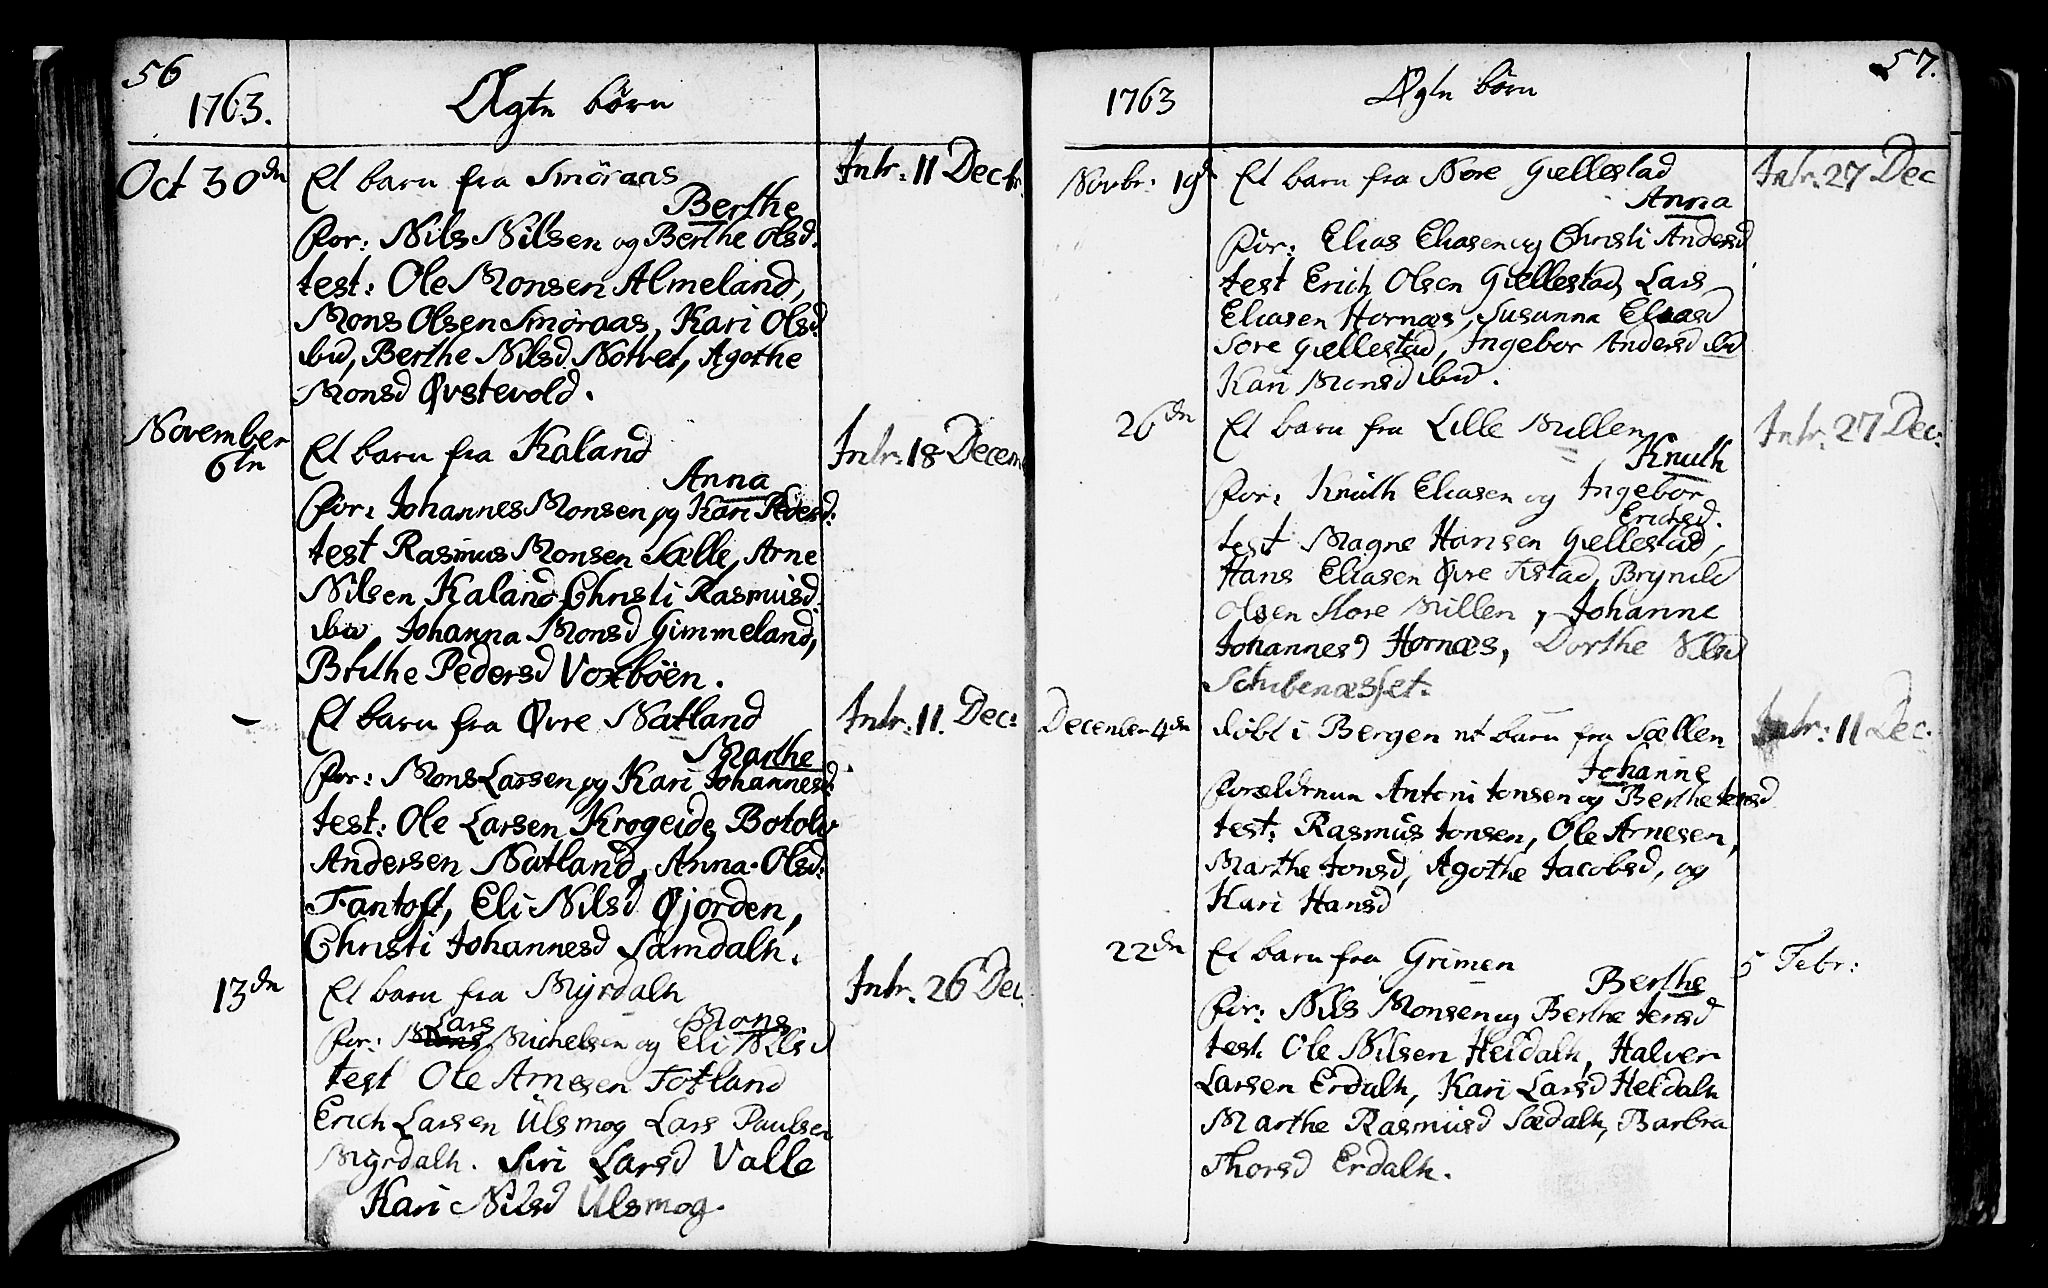 56
1763.
Ægte börn
Oct 30 dn
Et barn fra Smöraas
Intr: 11 Decbr.
Berthe
For: Nils Nilsen og Berthe Olsd.
test: Ole Monsen Almeland,
Mons Olsen Smöraas, Kari Olsd
ibid, Berthe Nilsd Notvet, Agothe
Monsd Øvstevold.
November
6tn
Et barn fra Kaland
Intr: 18 Decem
Anna
For: Johannes Monsen og Kari Pedersd:
test Rasmus Monsen Sælle, Arne
Nilsen Kaland Christi Rasmusd.
ibid, Johanna Monsd Gimmeland,
Brithe Pedersd Voxböen.
-
Et barn fra Øvre Natland
Intr: 11. Dec:
Marthe
For: Mons Larsen og Kari Johannesd:
test: Ole Larsen Krogeide, Botolv
Andersen Natland, Anna Olsd:
Fantoft, Eli Nilsd Øjorden,
Christi Johannesd Samdalh.
13 dn
Et barn fra Myrdalh
Intr. 26 Dec.
Lars
Mons
For: Mons Michelsen og Eli Nilsd
test Ole Arnesen Totland
Erich Larsen Ulsmog Lars Paulsen
Myrdalh. Siri Larsd Valle
Kari Nilsd Ulsmog.
57.
1763
Ægte börn
Novbr: 19 d
Et barn fra Nore Giellestad
Intr: 27 Dec
Anna
For: Elias Eliasen og Christi Andersd
test Erich Olsen Giellestad, Lars
Eliasen Hornæs, Susanna Eliasd
Söre Giellestad, Ingebor Andersd ibid
Kari Monsd ibid.
26 dn
Et barn fra Lille Millen
Intr: 27 Dec:
Knuth
For: Knuth Eliasen og Ingebor
Erichsd.
test Magne Hansen Giellestad,
Hans Eliasen Øvre Titlestad, Brynild
Olsen Store Millen, Johanne
Johannesd Hornæs, Dorthe Nilsd
Schibenæsset.
December 4 dn
döbt i Bergen et barn fra Sællen
Intr: 11 Dec:
Johanne
Forældrene Antoni Jonsen og Berthe Jensd
test: Rasmus Jonsen, Ole Arnesen,
Marthe Jonsd, Agothe Jacobsd, og
Kari Hansd
22 dn
Et barn fra Grimen
5 Febr:
Berthe
For: Nils Monsen og Berthe Jensd
test. Ole Nilsen Heldalh, Halver
Larsen Erdalh, Kari Larsd Heldalh
Marthe Rasmusd Sædalh, Barbra
Thorsd Erdalh.